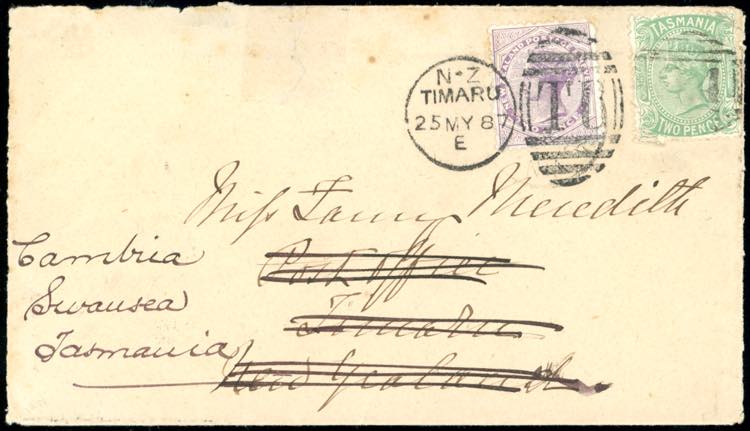 N-Z
TIMARU
25 MY 87
E
TASMANIA
TWO PENCE
Miss Fanny Meredith
Post Office
Timaru
New Zealand
Cambria
Swansea
Tasmania